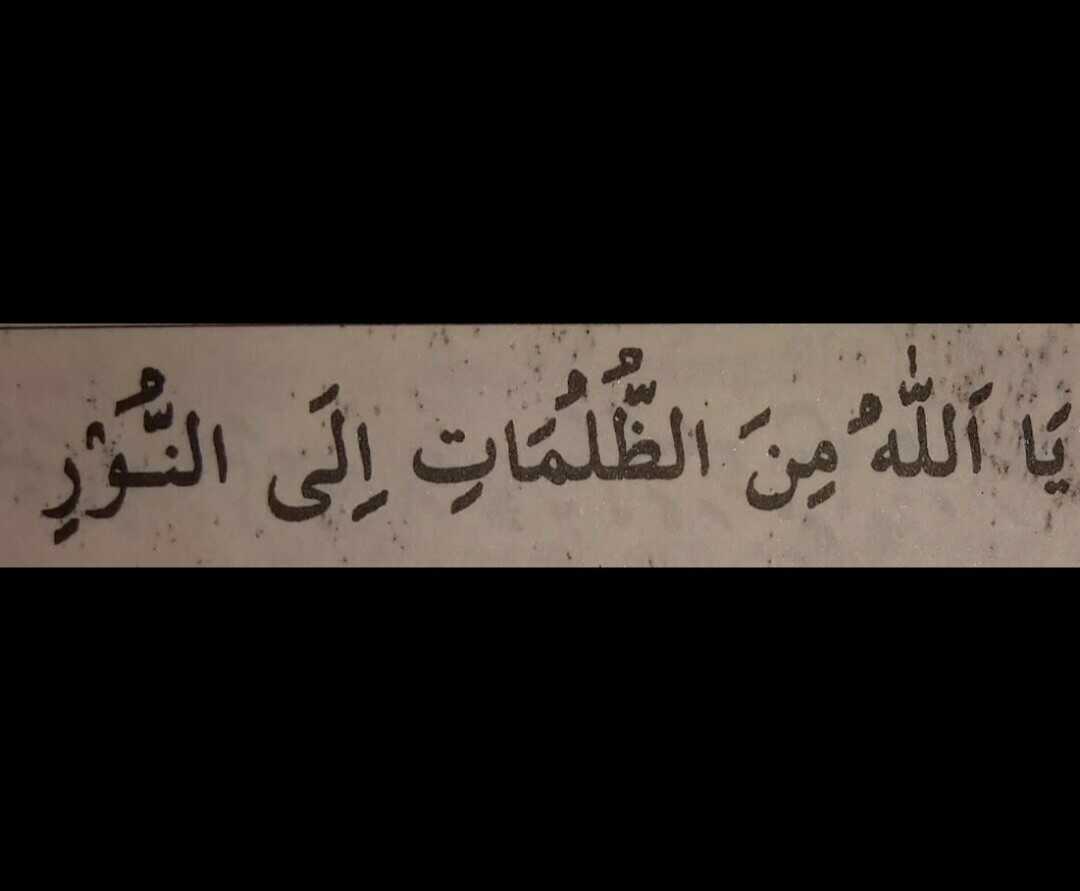 يَا اَللّٰهُ مِنَ الظُّلُمَاتِ اِلَى النُّوْرِ